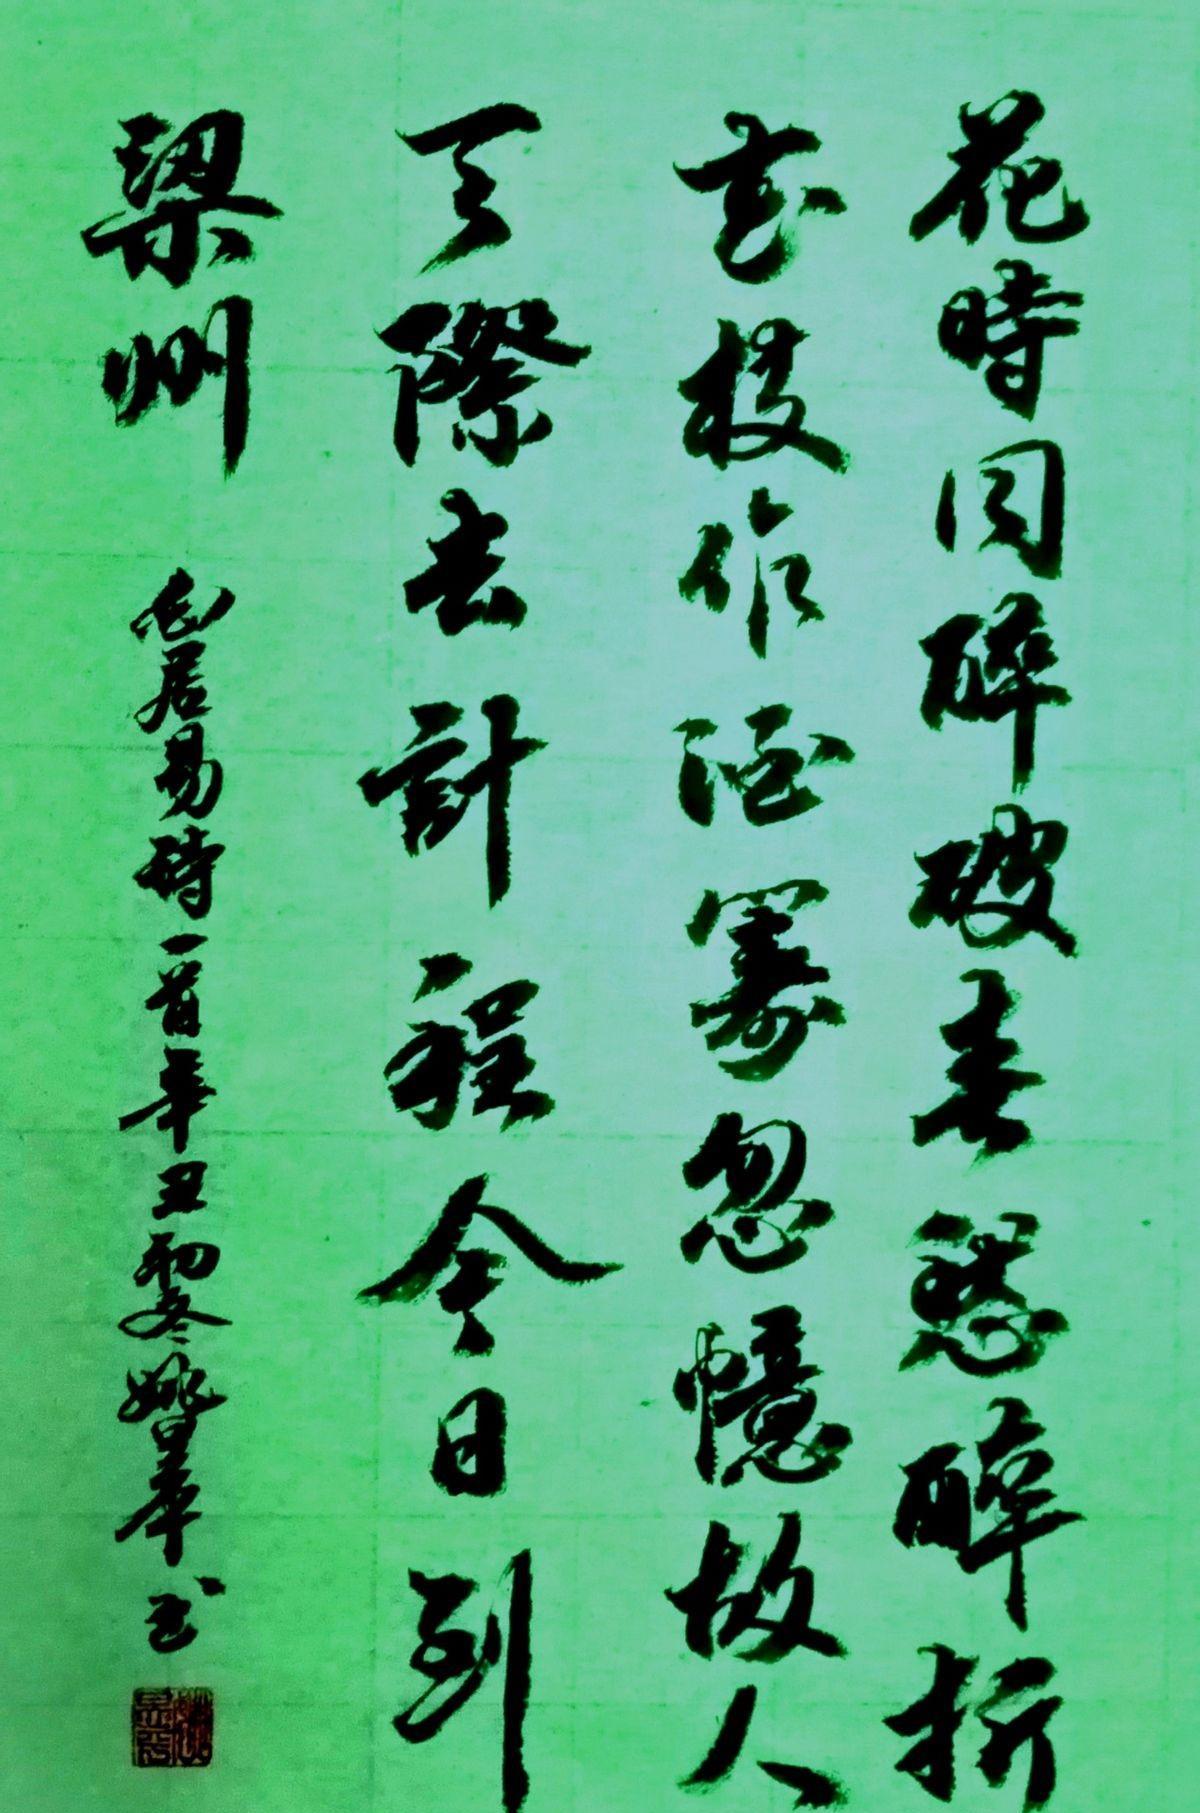 花時同醉破春愁醉折
花枝作酒籌忽憶故人
天際去計程今日到
梁州
白居易詩一首辛丑初冬姚书